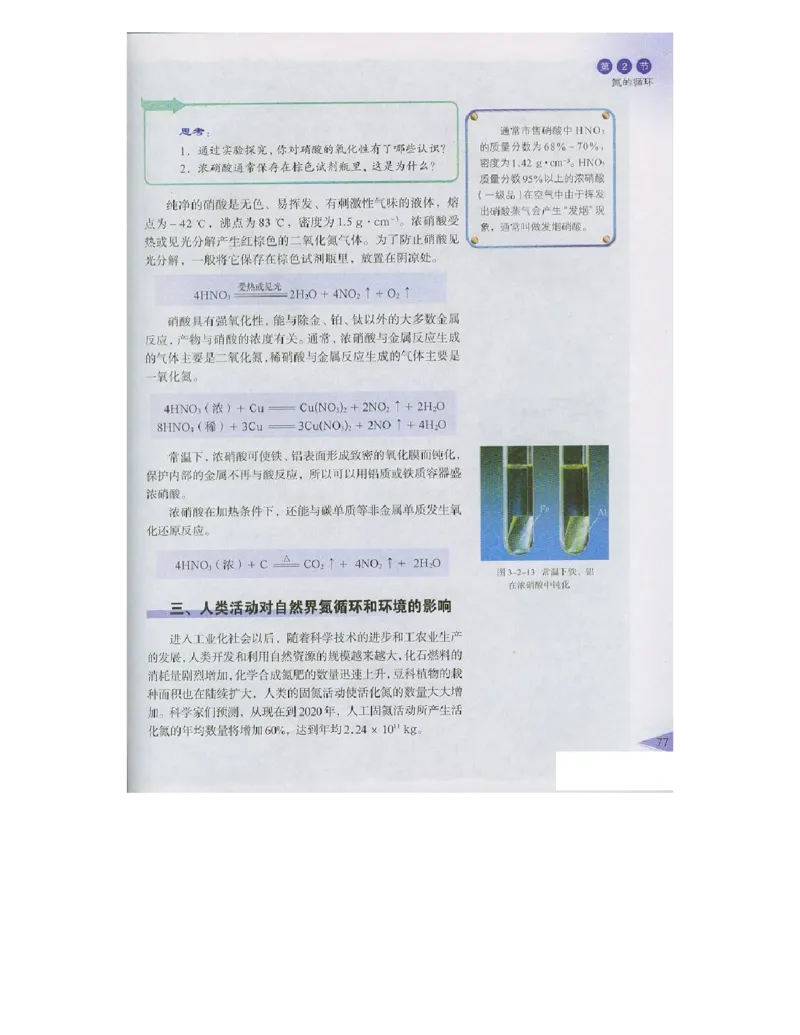 第 2 节
氮的循环
思考：
1. 通过实验探究，你对硝酸的氧化性有了哪些认识？
2. 浓硝酸通常保存在棕色试剂瓶里，这是为什么？
通常市售硝酸中 HNO₃
的质量分数为68%～70%，
密度为1.42 g·cm⁻³。HNO₃
质量分数95%以上的浓硝酸
（一级品）在空气中由于挥发
出硝酸蒸气会产生“发烟”现
象，通常叫做发烟硝酸。
纯净的硝酸是无色、易挥发、有刺激性气味的液体，熔
点为－42 ℃，沸点为 83 ℃，密度为 1.5 g·cm⁻³。浓硝酸受
热或见光分解产生红棕色的二氧化氮气体。为了防止硝酸见
光分解，一般将它保存在棕色试剂瓶里，放置在阴凉处。
受热或见光
4HNO₃ ═══ 2H₂O + 4NO₂ ↑ + O₂ ↑
硝酸具有强氧化性，能与除金、铂、钛以外的大多数金属
反应，产物与硝酸的浓度有关。通常，浓硝酸与金属反应生成
的气体主要是二氧化氮，稀硝酸与金属反应生成的气体主要是
一氧化氮。
4HNO₃（浓）+ Cu ═══ Cu(NO₃)₂ + 2NO₂ ↑ + 2H₂O
8HNO₃（稀）+ 3Cu ═══ 3Cu(NO₃)₂ + 2NO ↑ + 4H₂O
常温下，浓硝酸可使铁、铝表面形成致密的氧化膜而钝化，
保护内部的金属不再与酸反应，所以可以用铝质或铁质容器盛
浓硝酸。
浓硝酸在加热条件下，还能与碳单质等非金属单质发生氧
化还原反应。
△
4HNO₃（浓）+ C ═══ CO₂ ↑ + 4NO₂ ↑ + 2H₂O
Fe
Al
图 3-2-13 常温下铁、铝
在浓硝酸中钝化
三、人类活动对自然界氮循环和环境的影响
进入工业化社会以后，随着科学技术的进步和工农业生产
的发展，人类开发和利用自然资源的规模越来越大，化石燃料的
消耗量剧烈增加，化学合成氮肥的数量迅速上升，豆科植物的栽
种面积也在陆续扩大，人类的固氮活动使活化氮的数量大大增
加。科学家们预测，从现在到 2020 年，人工固氮活动所产生活
化氮的年均数量将增加 60%，达到年均 2.24 × 10¹¹ kg。
77